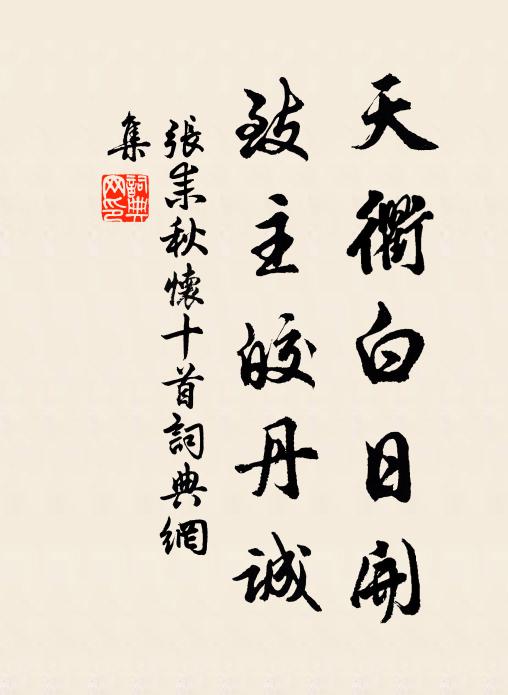 天衢白日開
致主皎丹誠
張耒秋懷十首詞典網
集
詞典
網印